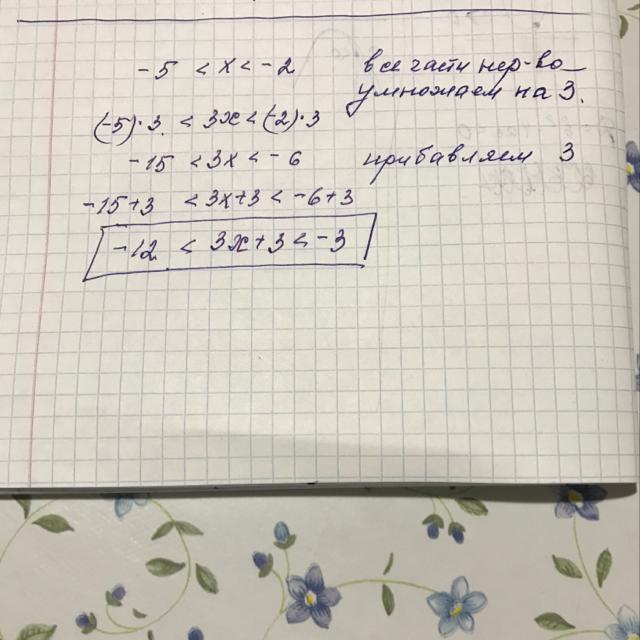 -5 < x < -2 все части нер-ва
умножаем на 3.
(-5)·3 < 3x < (-2)·3
-15 < 3x < -6 прибавляем 3
-15+3 < 3x+3 < -6+3
-12 < 3x+3 < -3